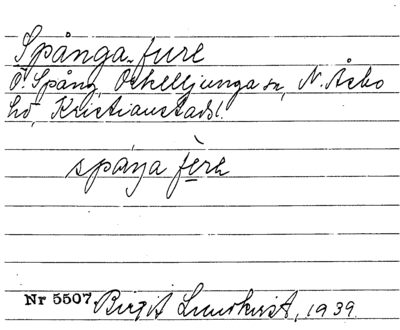 Spånga-fure
Ö. Spång, Örkelljunga sn, N. Åsbo
hd, Kristianstads l.
spåŋa fɵrə
Nr 5507. Birgit Lundkvist, 1939.